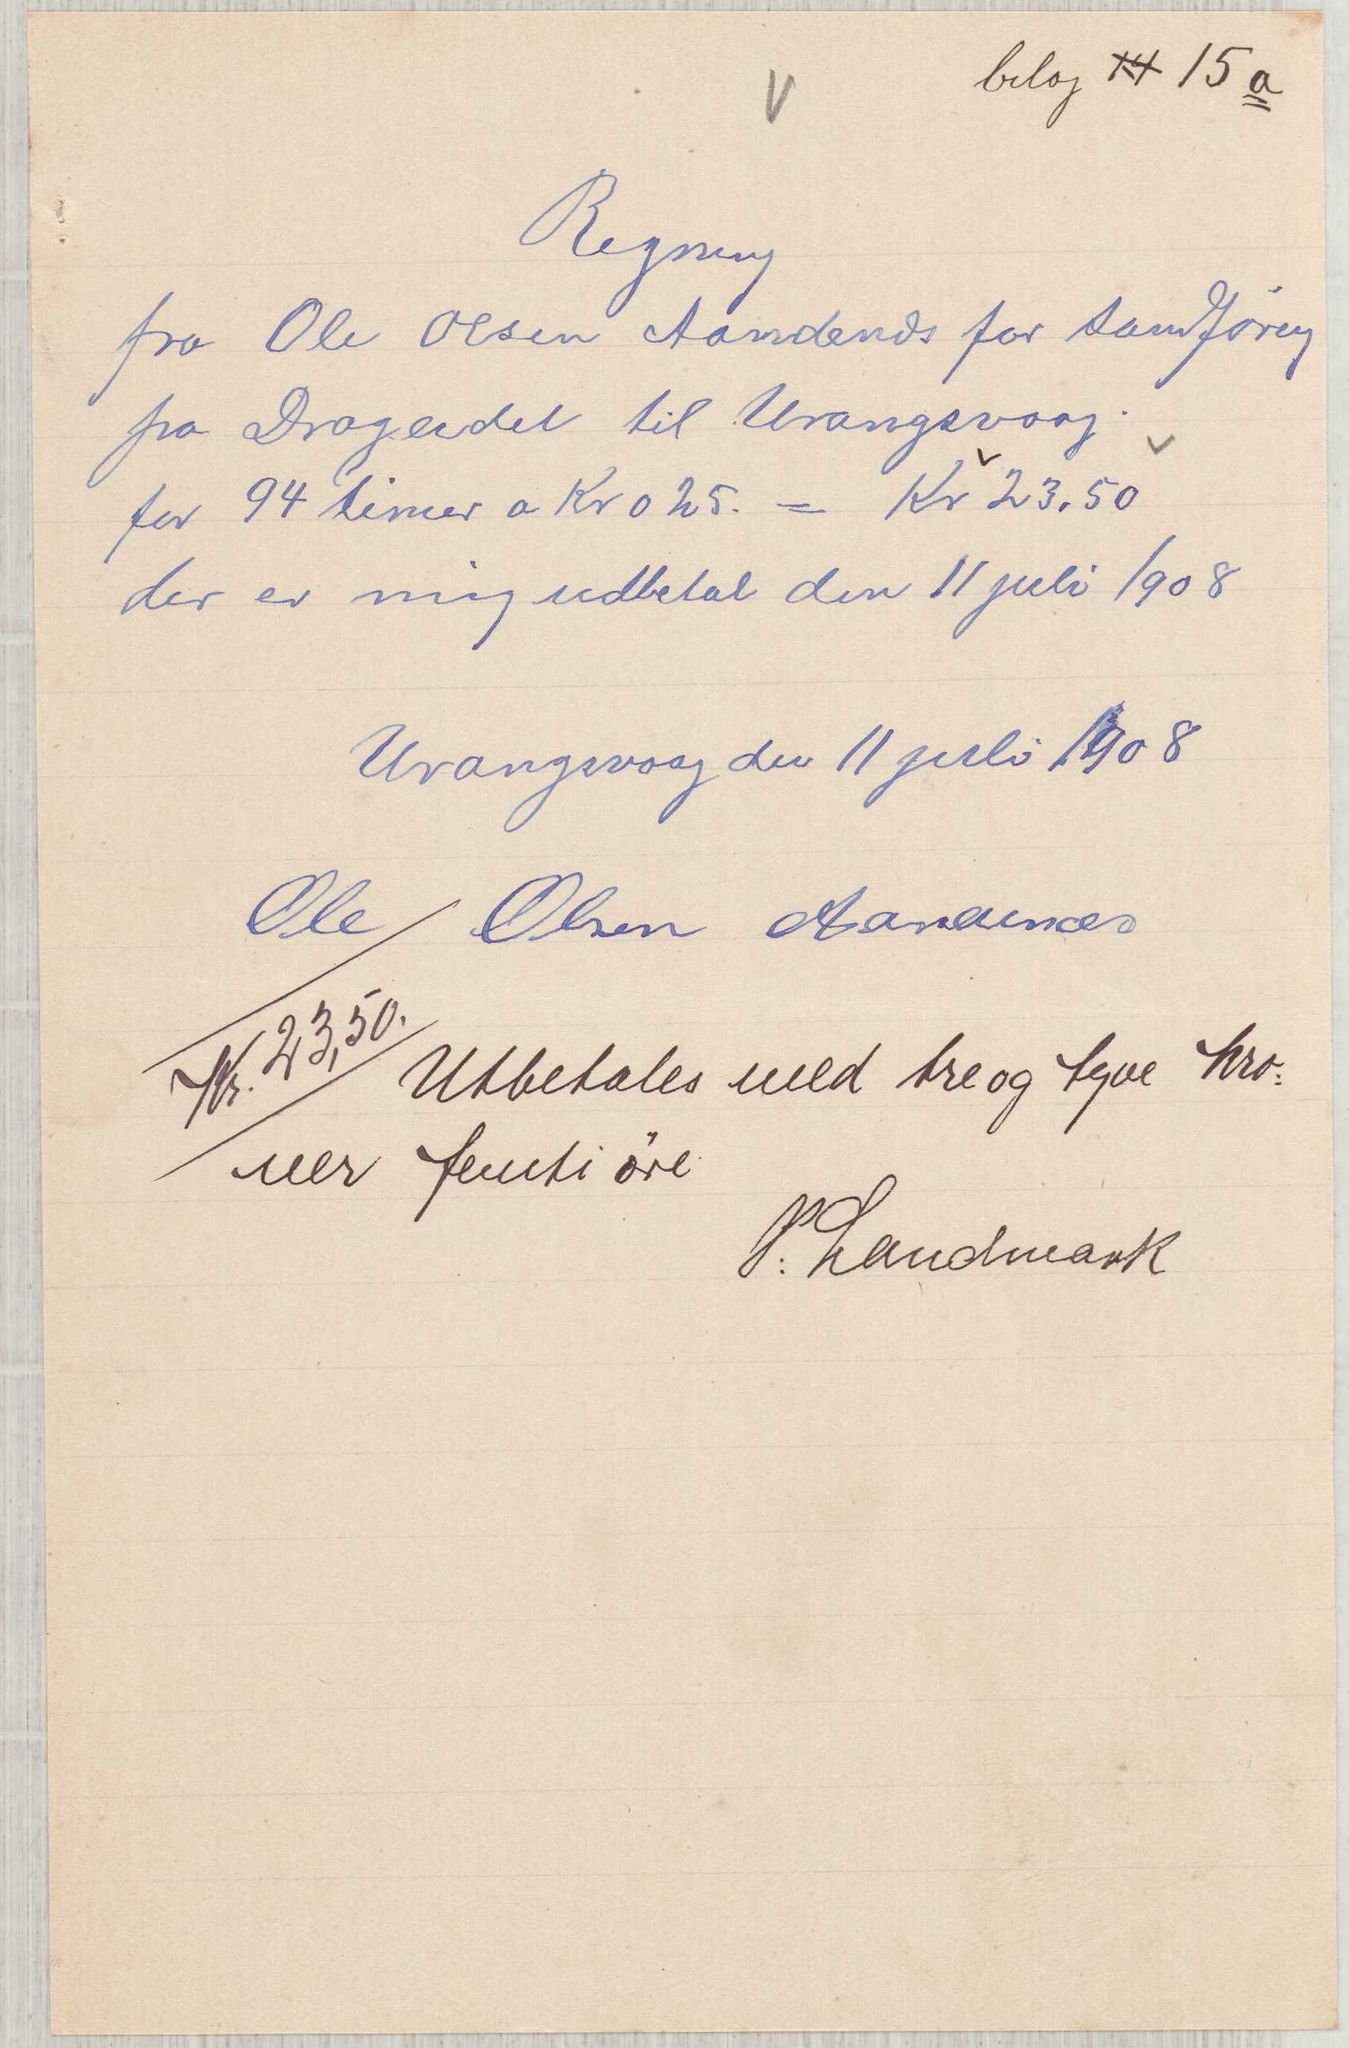 bilag 14 15 a
Regning
fra Ole Olsen Aandenæs for sandföring
fra Drageidet til Urangsvaag.
for 94 timer a Kr 0 25. = Kr 23.50
der er mig udbetal den 11 juli 1908
Urangsvaag den 11 juli 1908
Ole Olsen Aandenæs
Kr. 23,50. Utbetales med treogtyve kro:
ner femti öre
P. Landmark